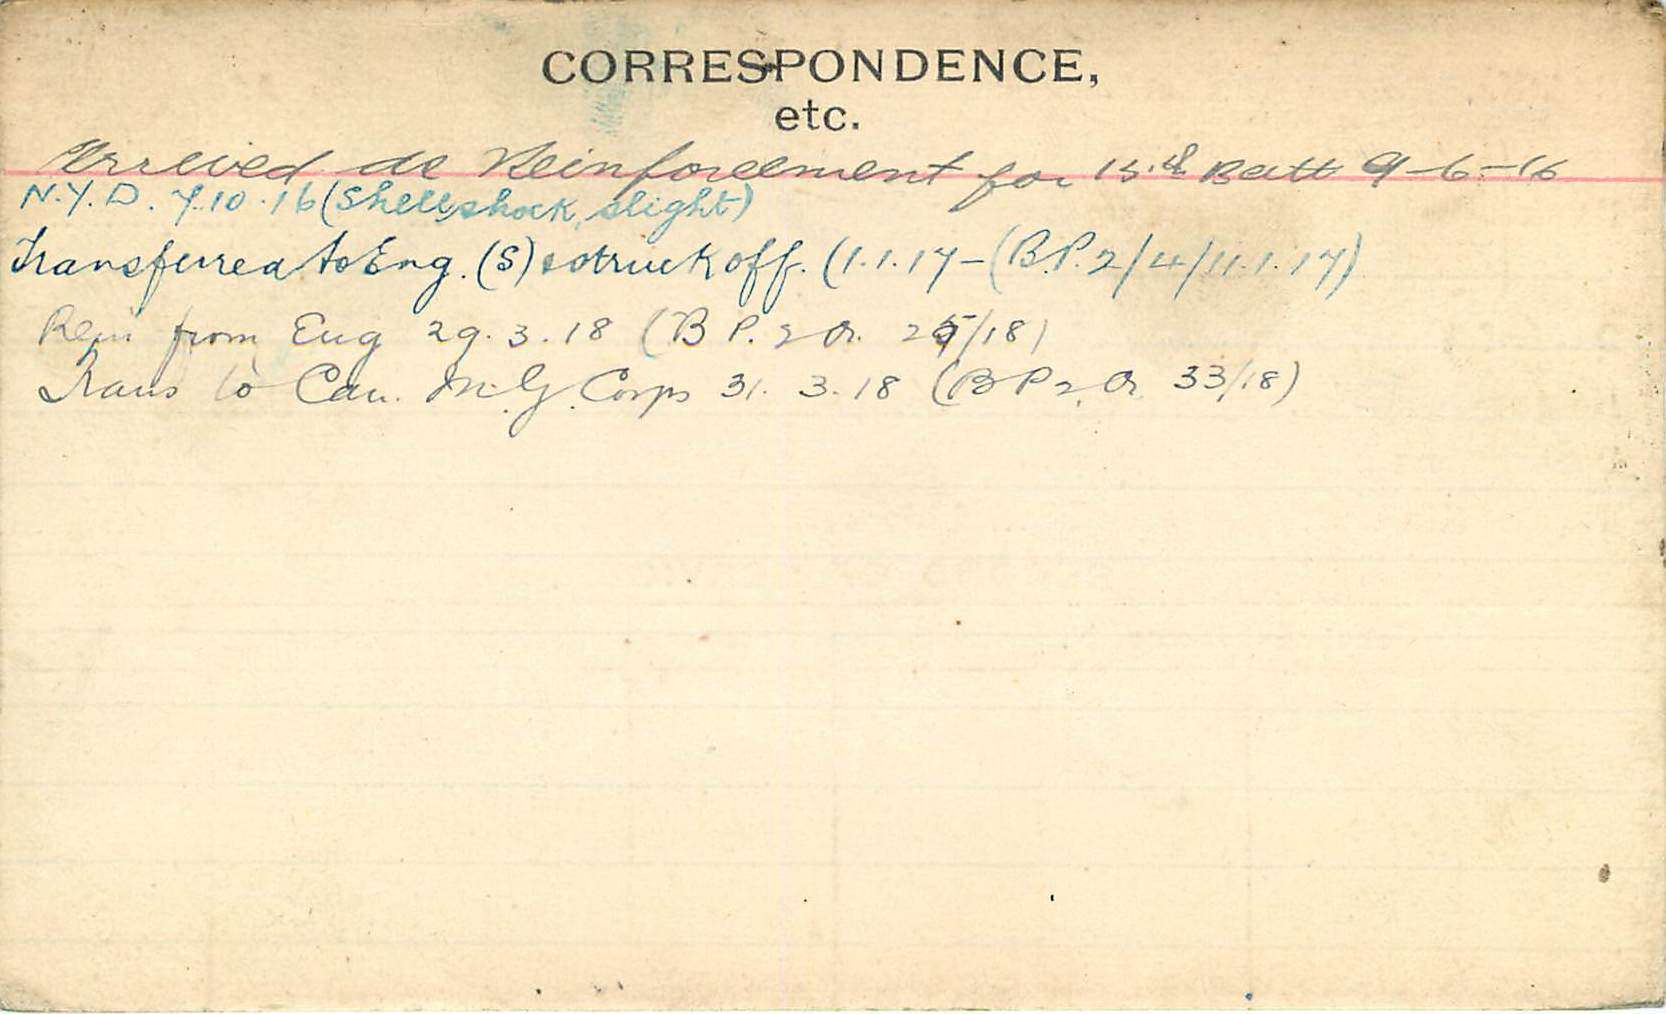 CORRESPONDENCE,
etc.
Arrived as Reinforcement for 13.th Batt 9-6-16
N.Y.D. 7.10.16 (Shellshock, slight)
Transferred to Eng. (S) & struck off. (1.1.17 - (B.P. 2/4/11.1.17)
Rein from Eug 29.3.18 (B P. 2 Or. 25/18)
Trans to Can. M.G. Corps 31.3.18 (B P 2, Or 33/18)